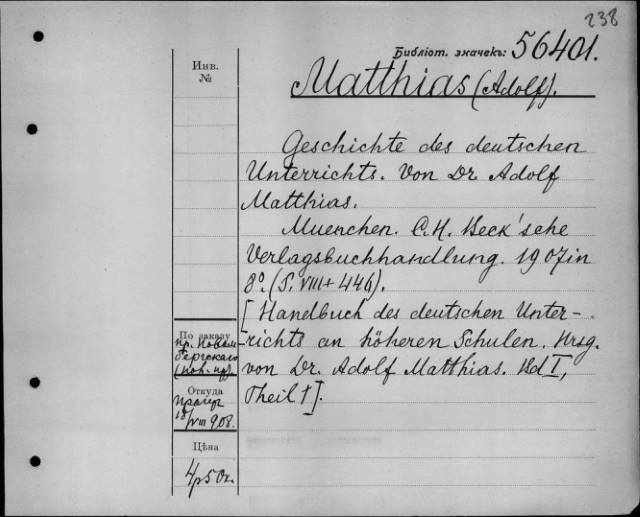 238
Библіот. значекъ: 56401.
Инв.
№
Matthias (Adolf).
Geschichte des deutschen
Unterrichts. Von Dr Adolf
Matthias.
Muenchen. C. H. Beck'sche
Verlagsbuchhandlung. 1907 in
8º. (S. VIII + 446).
[Handbuch des deutschen Unter-
richts an höheren Schulen. Hrsg.
von Dr. Adolf Matthias. Bd I,
Theil 1].
По заказу
пр.
Откуда
18/VIII 908.
Цѣна
4 р 50 к.